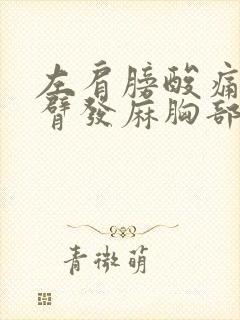 左肩膀酸痛
臂發麻胸部
青微萌